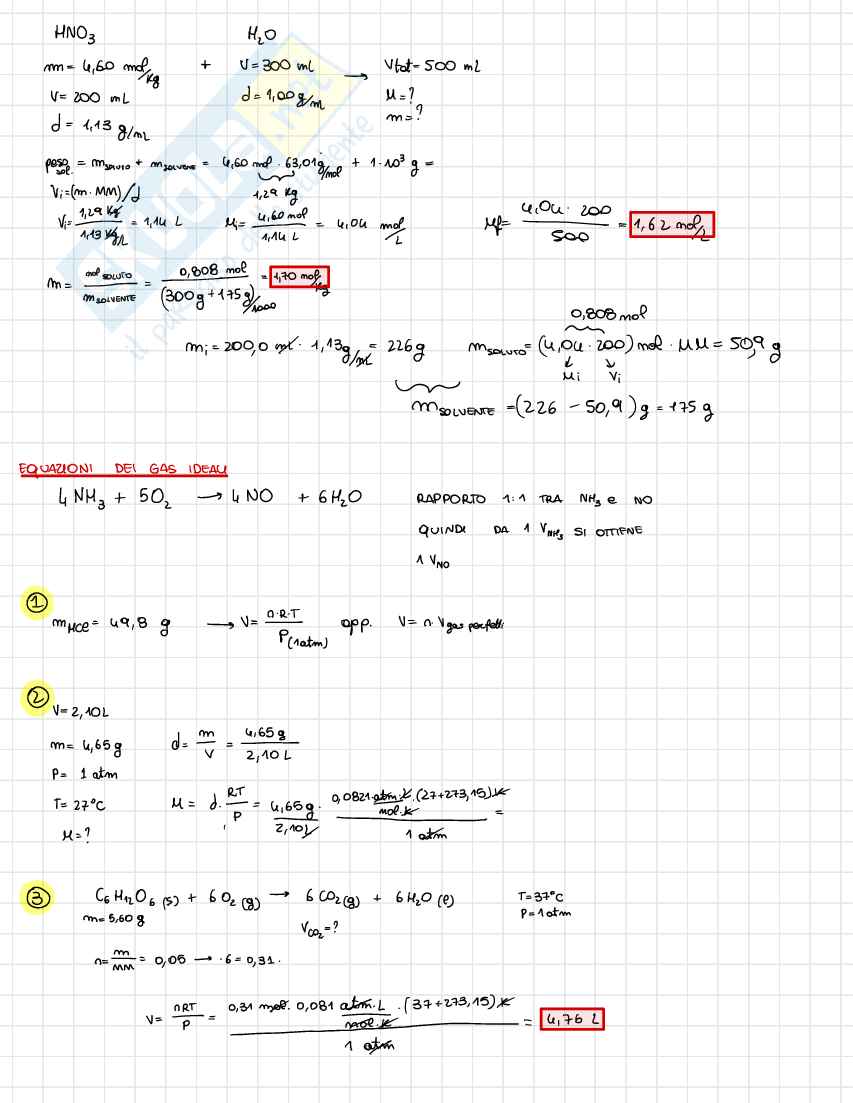 HNO₃ H₂O
m = 4,60 mol/kg + V = 300 mL → Vtot = 500 mL
V = 200 mL d = 1,00 g/mL M = ?
d = 1,13 g/mL m = ?
peso sol. = m SOLUTO + m SOLVENTE = 4,60 mol · 63,01 g/mol + 1·10³ g =
1,29 Kg
Vi = (m · MM)/d
Vi = 1,29 Kg / 1,13 Kg/L = 1,14 L Mi = 4,60 mol / 1,14 L = 4,04 mol/L Mf = 4,04 · 200 / 500 = 1,62 mol/L
m = mol SOLUTO / m SOLVENTE = 0,808 mol / (300 g + 175 g)/1000 = 1,70 mol/kg
0,808 mol
mi = 200,0 mL · 1,13 g/mL = 226 g m SOLUTO = (4,04 · 200) mol · MM = 50,9 g
Mi Vi
m SOLVENTE = (226 - 50,9) g = 175 g
EQUAZIONI DEI GAS IDEALI
4 NH₃ + 5O₂ → 4 NO + 6 H₂O RAPPORTO 1:1 TRA NH₃ e NO
QUINDI DA 1 V NH₃ SI OTTIENE
1 V NO
1
m HCl = 49,8 g → V = n·R·T / P(1atm) opp. V = n · V gas perfetti
2
V = 2,10 L
m = 4,65 g d = m / V = 4,65 g / 2,10 L
P = 1 atm
T = 27°C M = d · RT / P = 4,65 g / 2,10 L · 0,0821 atm·L / mol·K · (27+273,15) K / 1 atm =
M = ?
3 C₆H₁₂O₆ (s) + 6 O₂ (g) → 6 CO₂ (g) + 6 H₂O (l) T = 37°C
m = 5,60 g V CO₂ = ? P = 1 atm
n = m / MM = 0,05 → ·6 = 0,31.
V = nRT / P = 0,31 mol · 0,081 atm·L / mol·K · (37+273,15) K / 1 atm = 4,76 L
SKUOLA.net